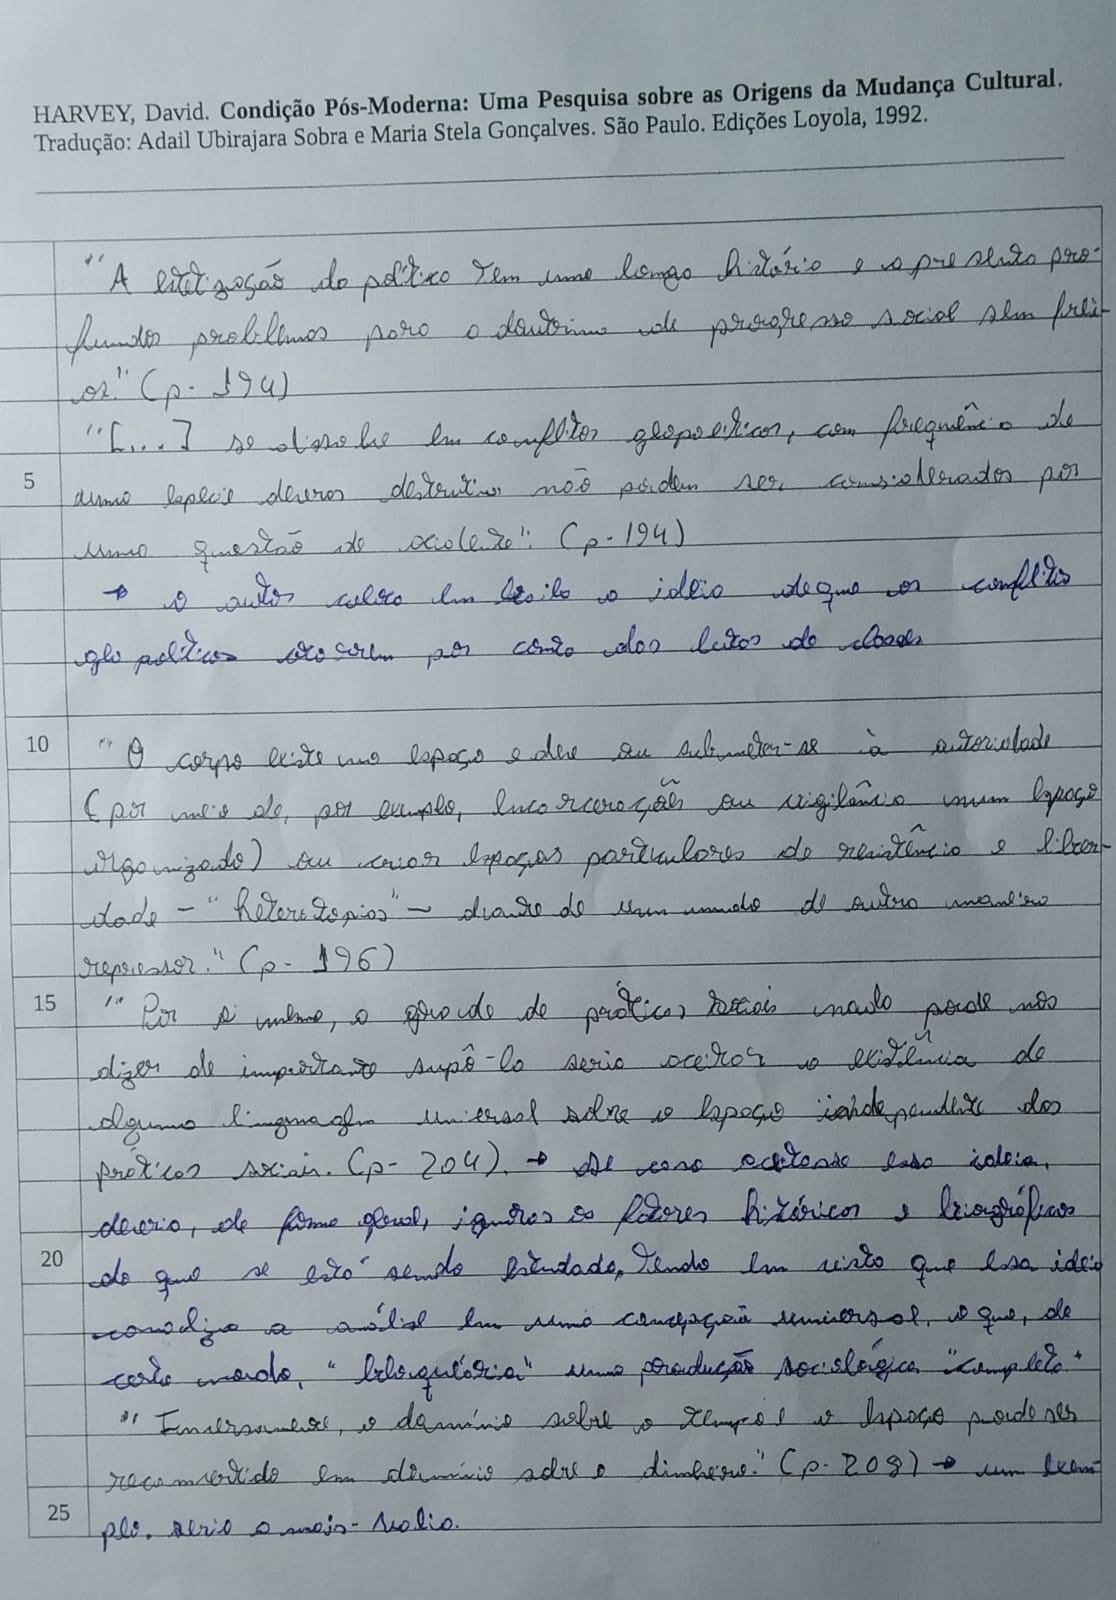 HARVEY, David. Condição Pós-Moderna: Uma Pesquisa sobre as Origens da Mudança Cultural.
Tradução: Adail Ubirajara Sobra e Maria Stela Gonçalves. São Paulo. Edições Loyola, 1992.
"A estetização do político tem uma longa história e apresenta pro-
fundos problemas para a doutrina de progresso social sem frei-
os." (p. 194)
"[...] se dissolve em conflitos geopolíticos, com frequência de
5 uma espécie deveras destrutiva não podem ser considerados por
uma questão de acidente". (p. 194)
→ o autor coloca em a ideia de que os conflitos
geo políticos ocorrem por conta das lutas de classes
10 "O corpo existe no espaço e deve ou submeter-se à autoridade
(por meio de, por exemplo, encarceração ou vigilância num espaço
organizado) ou criar espaços particulares de resistência e liber-
dade - "heterotopias" - diante de um mundo de outra maneira
repressor." (p. 196)
15 "Por si mesma, a grade de práticas sociais nada pode nos
dizer de importante supô-lo seria aceitar a existência de
alguma linguagem universal sobre o espaço independente das
práticas sociais. (p. 204). → Se caso aceitasse essa ideia,
deveria, de forma geral, ignorar os fatores históricos e biográficos
20 do que se está sendo estudado, tendo em vista que essa ideia
a análise em uma concepção universal, o que, de
certo modo, " " uma produção sociológica "completa"
"Inversamente, o domínio sobre o tempo e o espaço pode ser
reconvertido em domínio sobre o dinheiro." (p. 208) → um exem
25 plo. seria a mais-valia.